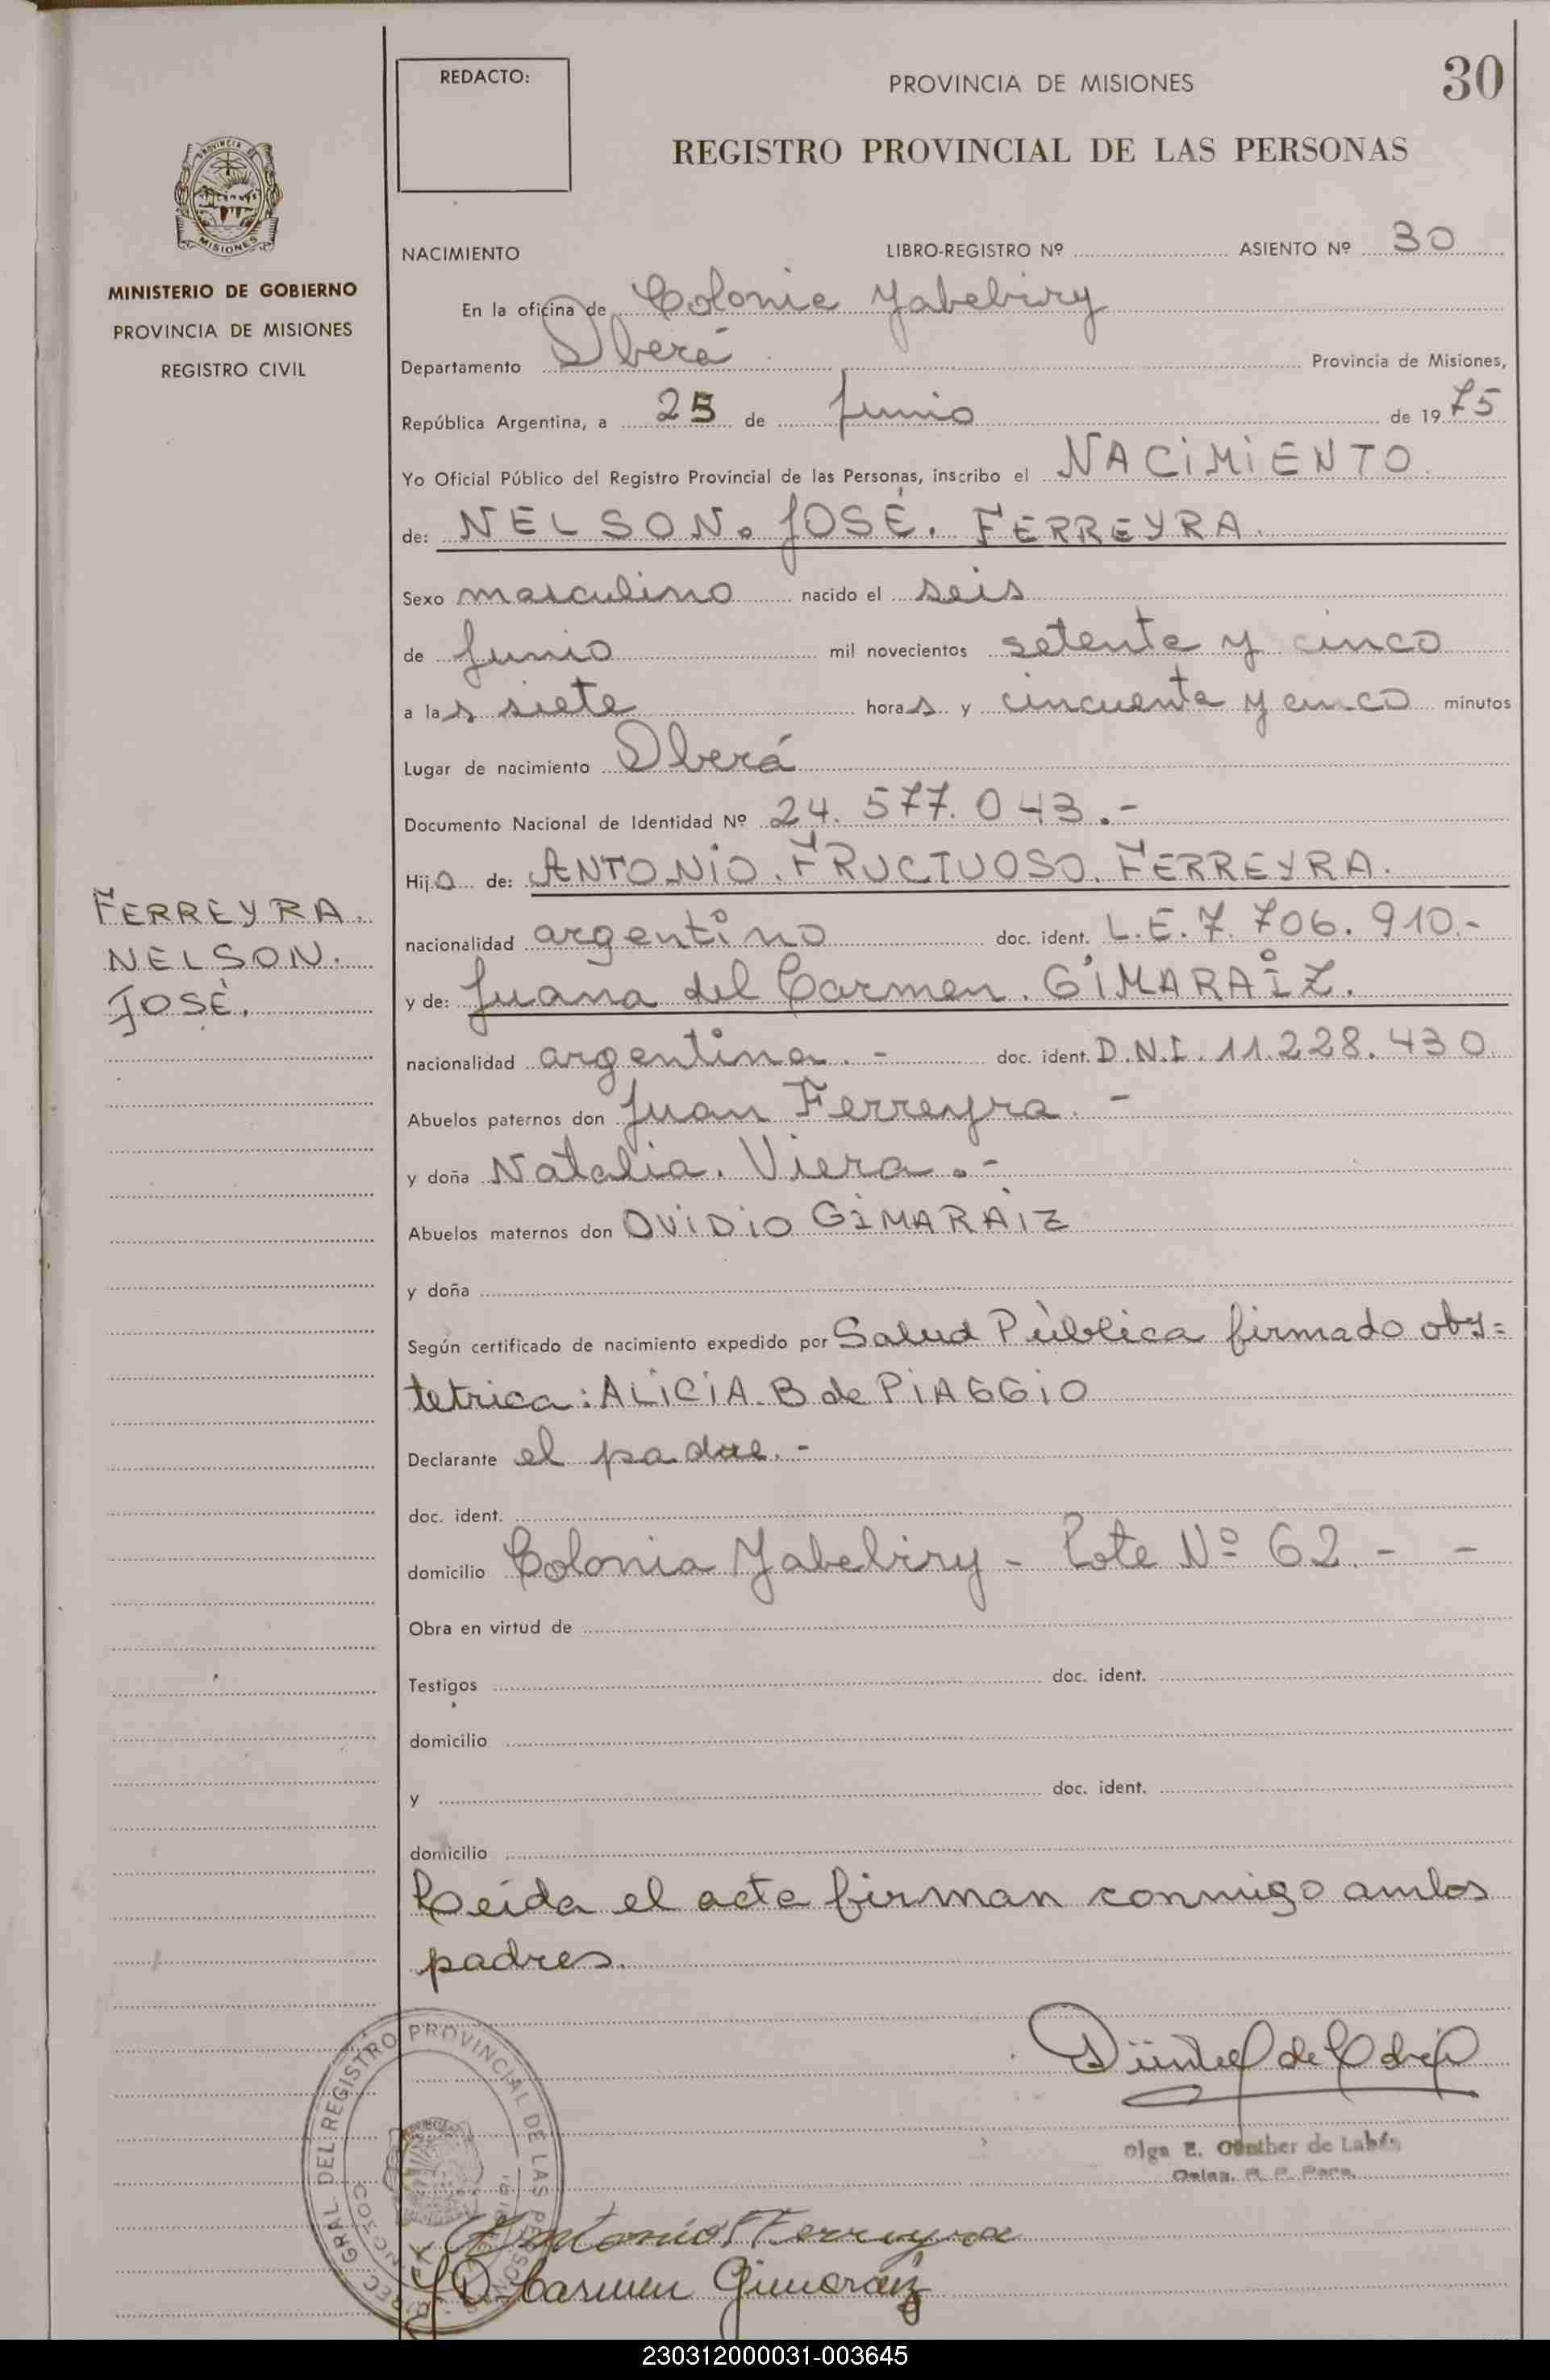 30
REDACTO:
PROVINCIA DE MISIONES
REGISTRO PROVINCIAL DE LAS PERSONAS
PROVINCIA DE
MISIONES
MINISTERIO DE GOBIERNO
PROVINCIA DE MISIONES
REGISTRO CIVIL
NACIMIENTO LIBRO-REGISTRO Nº ASIENTO Nº 30
En la oficina de Colonia Yabebiry
Departamento Oberá Provincia de Misiones,
República Argentina, a 25 de Junio de 1975
Yo Oficial Público del Registro Provincial de las Personas, inscribo el NACIMIENTO
de: NELSON. JOSÉ. FERREYRA.
Sexo masculino nacido el seis
de Junio mil novecientos setenta y cinco
a las siete horas y cincuenta y cinco minutos
Lugar de nacimiento Oberá
Documento Nacional de Identidad Nº 24.577.043.-
Hijo de: ANTONIO. FRUCTUOSO. FERREYRA.
nacionalidad argentino doc. ident. L.E. 7.706.910.-
y de: Juana del Carmen. GIMARAIZ.
nacionalidad argentina.- doc. ident. D.N.I. 11.228.430
Abuelos paternos don Juan Ferreyra.-
y doña Natalia. Viera.-
Abuelos maternos don OVIDIO GIMARAIZ
y doña
Según certificado de nacimiento expedido por Salud Pública firmado obs=
tetrica: ALICIA. B de PIAGGIO
Declarante el padre.-
doc. ident.
domicilio Colonia Yabebiry - Lote Nº 62.- -
Obra en virtud de
Testigos doc. ident.
domicilio
y doc. ident.
domicilio
Leída el acta firman conmigo ambos
padres.
FERREYRA.
NELSON.
JOSÉ.
DIREC. GRAL. DEL REGISTRO PROVINCIAL DE LAS PERSONAS
Olga E. Günther de
Antonio F Ferreyra
J D Carmen Gimaráiz
230312000031-003645